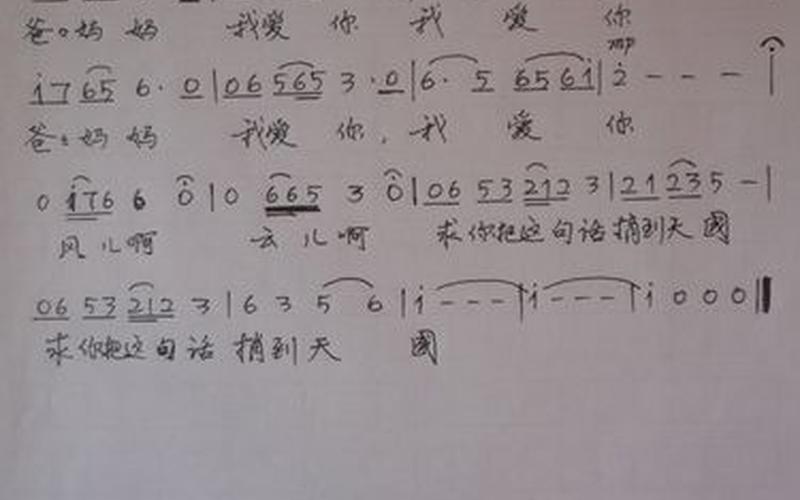 爸爸妈妈 我爱 你 我 爱 你
mp
i 7 6 5 6 · 0 | 0 6 5 6 5 3 · 0 | 6 · 5 6 5 6 i | 2 - - - |
爸爸妈妈 我爱 你, 我 爱 你
0 i 7 6 6 0 | 0 6 6 5 3 0 | 0 6 5 3 2 1 2 3 | 2 1 2 3 5 - |
风儿啊 云儿啊 求你把这句话捎到天國
0 6 5 3 2 1 2 3 | 6 3 5 6 | i - - - | i - - - | i 0 0 0 ‖
求你把这句话 捎到天 國